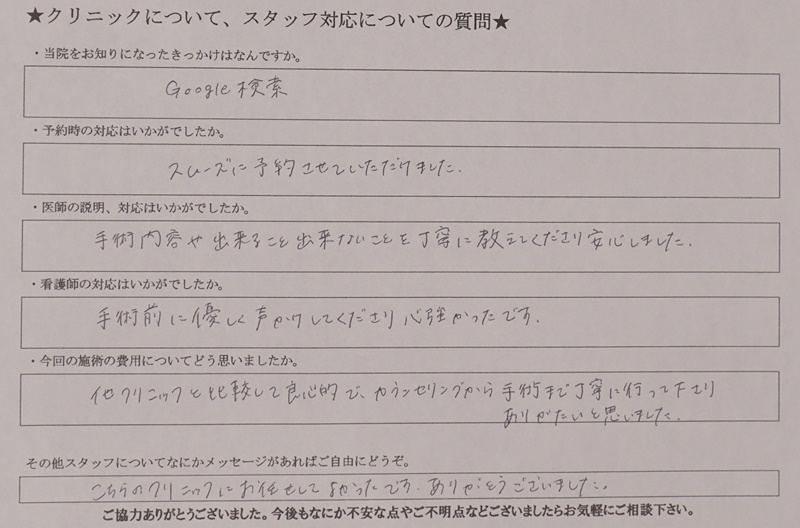 ★クリニックについて、スタッフ対応についての質問★
・当院をお知りになったきっかけはなんですか。
Google検索
・予約時の対応はいかがでしたか。
スムーズに予約させていただけました。
・医師の説明、対応はいかがでしたか。
手術内容や出来ること出来ないことを丁寧に教えてくださり安心しました。
・看護師の対応はいかがでしたか。
手術前に優しく声かけしてくださり心強かったです。
・今回の施術の費用についてどう思いましたか。
他クリニックと比較して良心的で、カウンセリングから手術まで丁寧に行って下さり
ありがたいと思いました。
その他スタッフについてなにかメッセージがあればご自由にどうぞ。
こちらのクリニックにお任せしてよかったです。ありがとうございました。
ご協力ありがとうございました。今後もなにか不安な点やご不明点などございましたらお気軽にご相談下さい。